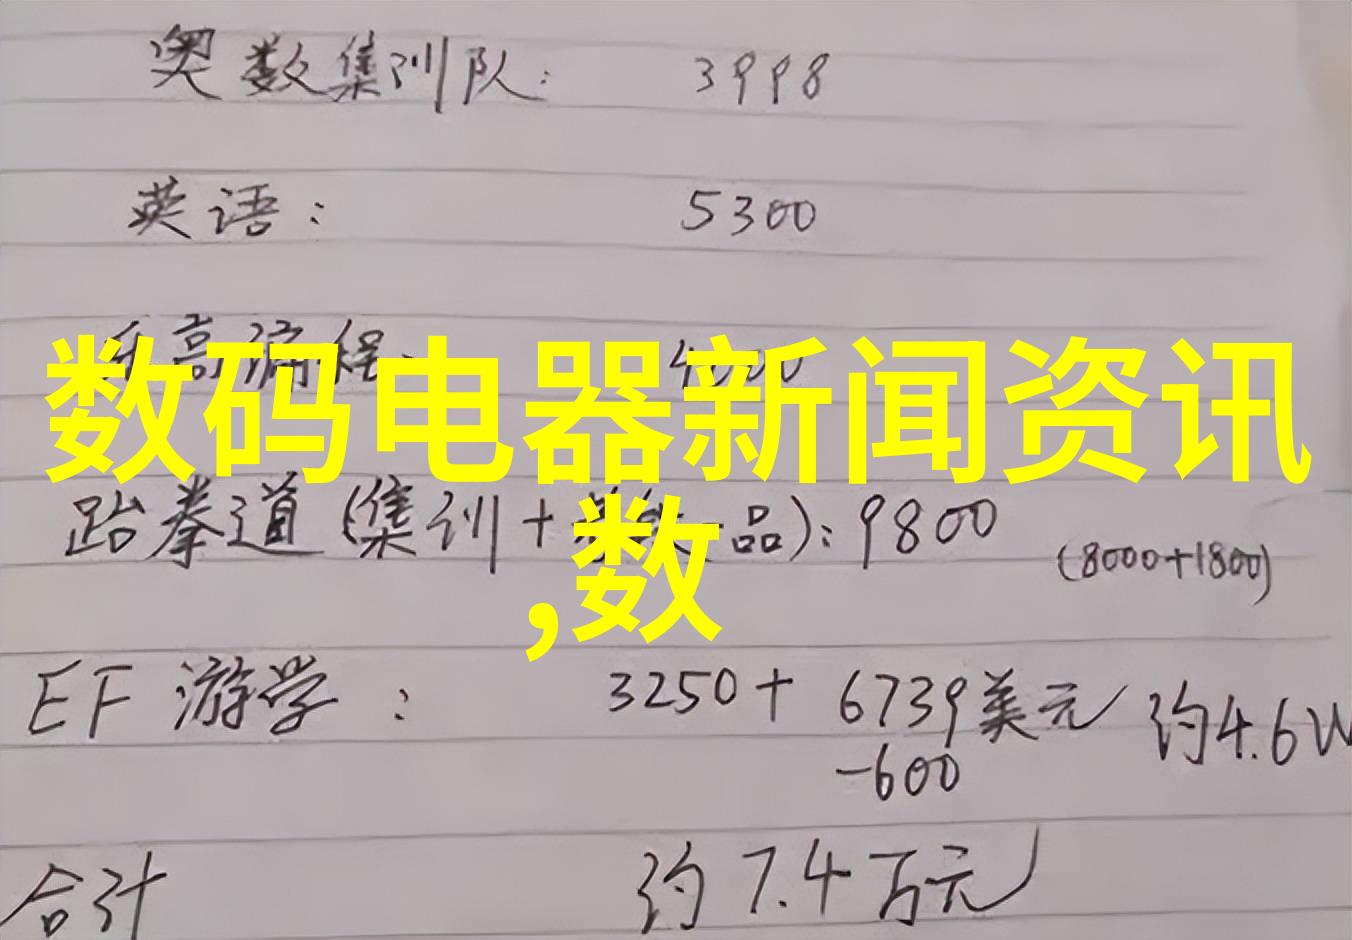 奥数集训队: 3998
英语: 5300
乐高编程: 4000
数码电器新闻资讯
,数
跆拳道(集训+ 品): 9800 (8000+1800)
EF 游学: 3250+ 6739美元 约4.6W
-600
合计 约7.4万元